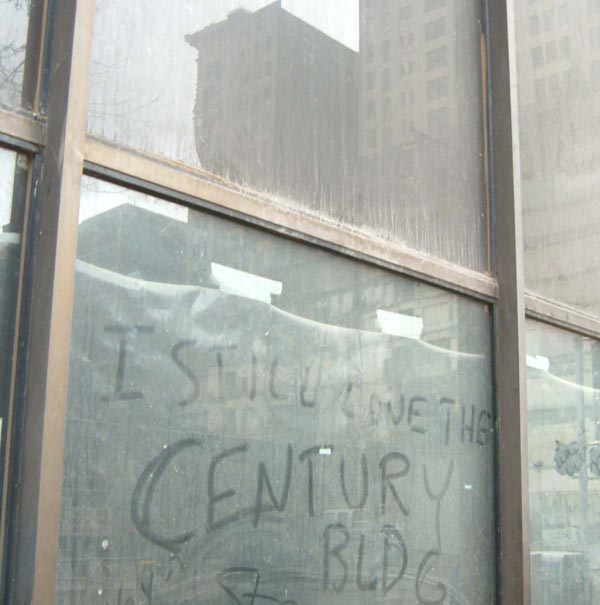 I STILL LOVE THE
CENTURY
BLDG